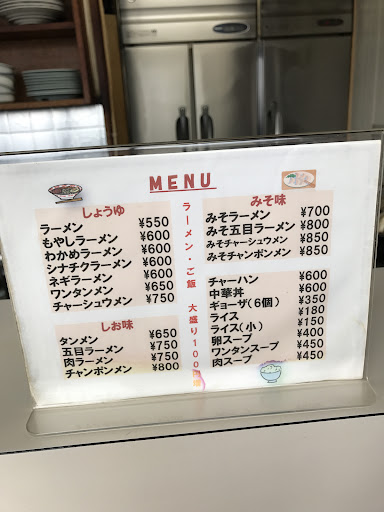 MENU
しょうゆ
ラーメン ¥550
もやしラーメン ¥600
わかめラーメン ¥600
シナチクラーメン ¥600
ネギラーメン ¥600
ワンタンメン ¥650
チャーシューメン ¥750
しお味
タンメン ¥650
五目ラーメン ¥750
肉ラーメン ¥750
チャンポンメン ¥800
ラーメン・ご飯 大盛り100
みそ味
みそラーメン ¥700
みそ五目ラーメン ¥800
みそチャーシュウメン ¥850
みそチャンポンメン ¥850
チャーハン ¥600
中華丼 ¥600
ギョーザ(6個) ¥350
ライス ¥180
ライス(小) ¥150
卵スープ ¥400
ワンタンスープ ¥450
肉スープ ¥450